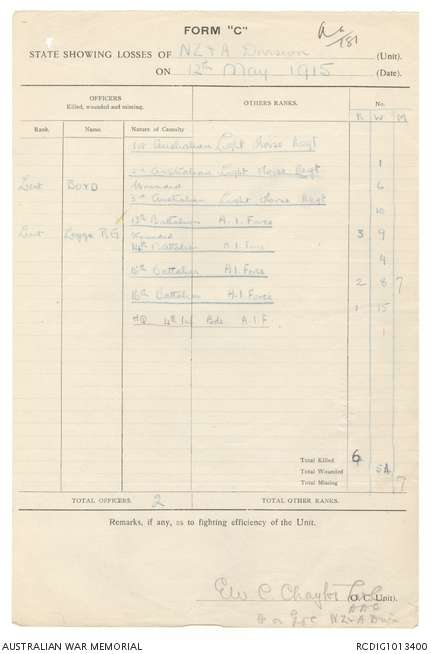 FORM "C"
181
STATE SHOWING LOSSES OF NZ & A Division (Unit).
ON 12th May 1915 (Date).
OFFICERS
Killed, wounded and missing.
OTHERS RANKS.
No.
Rank. Name. Nature of Casualty
K W M
1st Australian Light Horse Regt
1
Australian Light Horse Regt
Lieut BOYD Wounded 6
3rd Australian Light Horse Regt
10
13th Battalion A.I. Force
Lieut Legge R.G. Wounded 3 9
14th Battalion A.I. Force
4
15th Battalion A.I. Force
2 8 7
16th Battalion A.I. Force
1 15
HQ 4th Inf Bde A.I.F
1
Total Killed 6
Total Wounded 54
Total Missing 7
TOTAL OFFICERS. 2 TOTAL OTHER RANKS.
Remarks, if any, as to fighting efficiency of the Unit.
EW C Chaytor (O.C. Unit).
AAG
for GOC NZ & A Divn
AUSTRALIAN WAR MEMORIAL RCDIG1013400